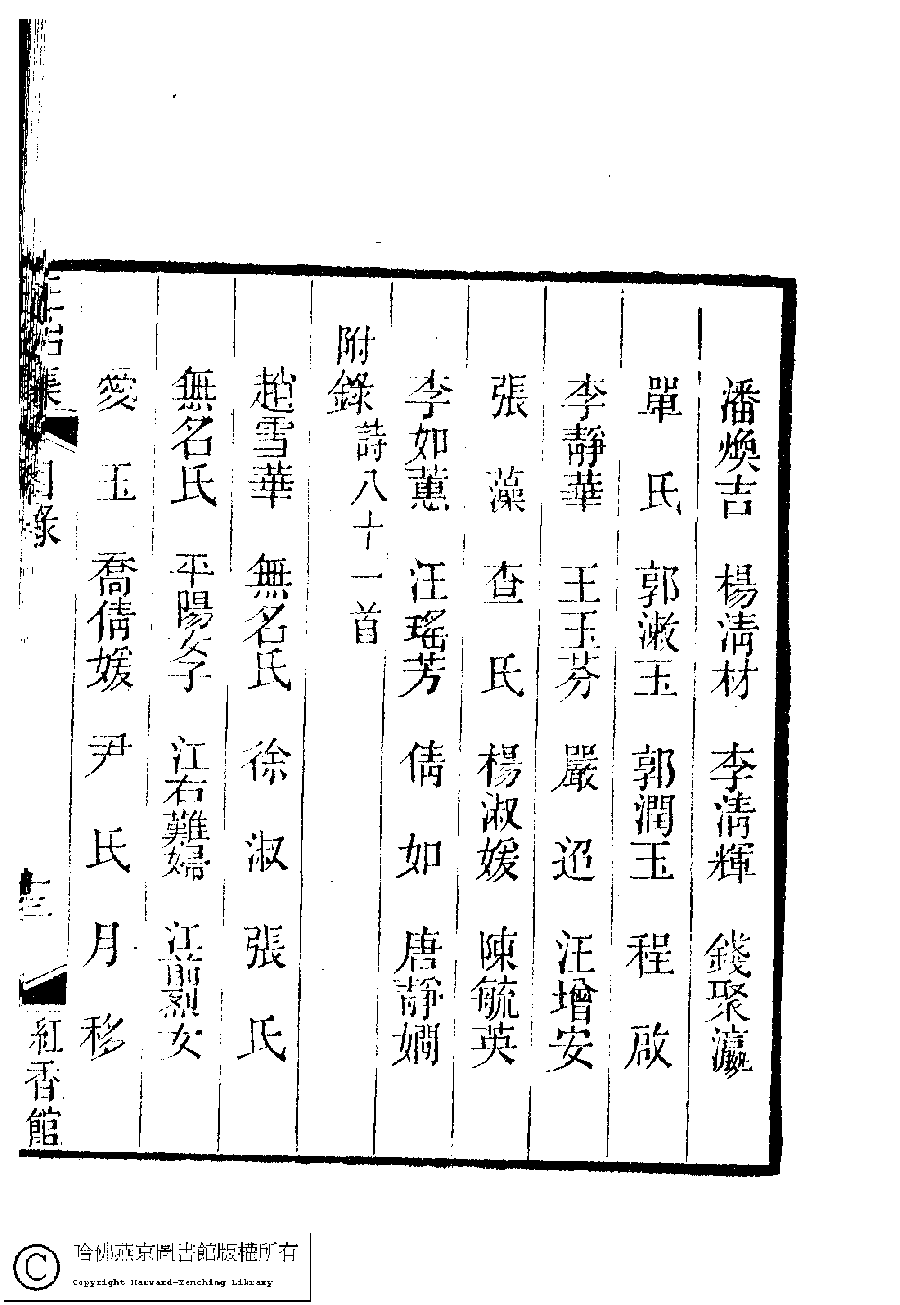 潘煥吉　楊清材　李清輝　錢聚瀛
單　氏　郭漱玉　郭潤玉　程　啟
李靜華　王玉芬　嚴　迢　汪增安
張　藻　查　氏　楊淑媛　陳毓英
李如蕙　汪瑤芳　倩　如　唐靜嫺
附錄詩八十一首
趙雪華　無名氏　徐　淑　張　氏
無名氏　平陽女子　江右難婦　江南烈女
愛　玉　喬倩媛　尹　氏　月　移
集　目錄　紅香館
哈佛燕京圖書館版權所有
Copyright Harvard-Yenching Library